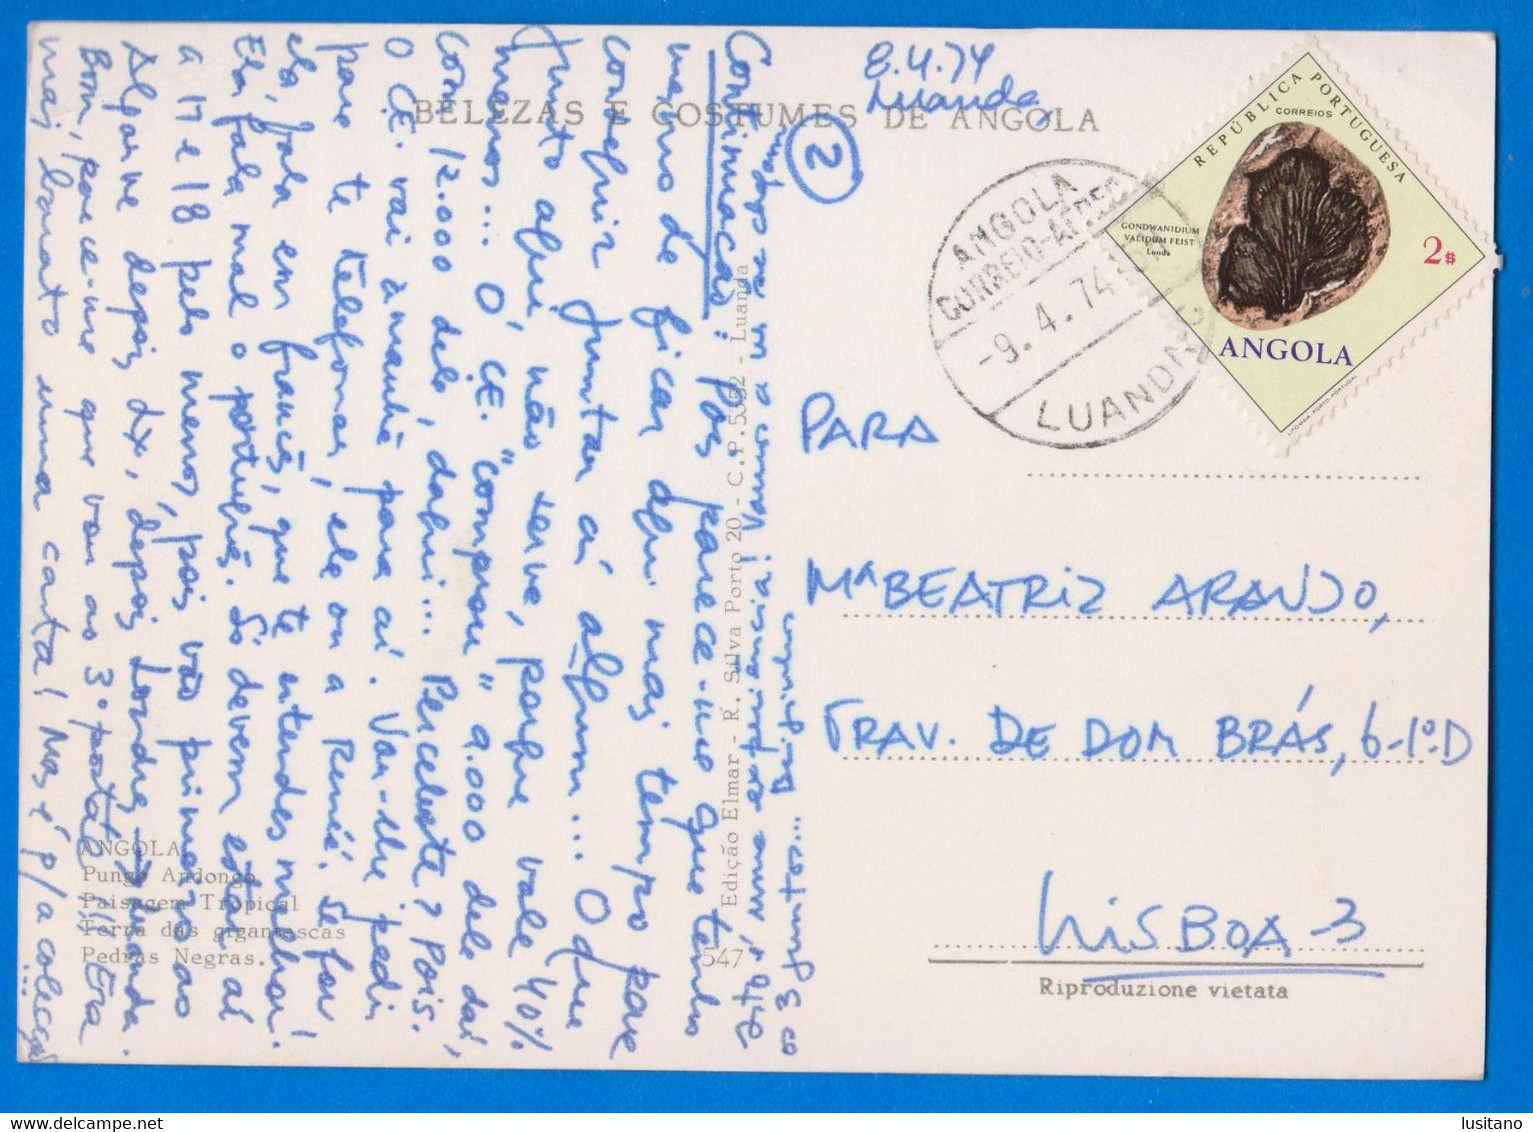 8.4.74
Luanda
BELEZAS E COSTUMES DE ANGOLA
2
REPÚBLICA PORTUGUESA
CORREIOS
GONDWANIDIUM
VALIDUM FEIST
Lunda
2$
ANGOLA
ANGOLA
CORREIO-AEREO
-9. 4. 74
LUANDA
Continuação: Pois parece-me que tenho
mesmo de ficar aqui mais tempo para
conseguir juntar aí algum... O que
junto aqui, não serve, porque vale 40%
menos... O C.E. "comprou" 9.000 dele daí,
com 12.000 dele, daqui... Percebeste? Pois.
O C.E. vai amanhã para aí. Vou-lhe pedir
para te telefonar, ele ou a Remié. Se for
ela, fala em francês, que te entendes melhor!
Ela fala mal o português. Só devem estar aí
a 17 e 18 pelo menos, pois vão primeiro ao
Algarve depois Lx, depois Londres → Luanda.
Bom, parece-me que vou ao 3º postal!! Era
mais barato uma carta! Mas é p/ a colecção
...
Vamos a
3
Beijinhos
Edição Elmar - R. Silva Porto 20 - C. P. 5352 - Luanda
PARA
Mª BEATRIZ ARAUJO,
TRAV. DE DOM BRÁS, 6-1º.D
LISBOA-3
Riproduzione vietata
ANGOLA
Pungo Andongo
Paisagem Tropical
Terra das gigantescas
Pedras Negras.
547
lusitano